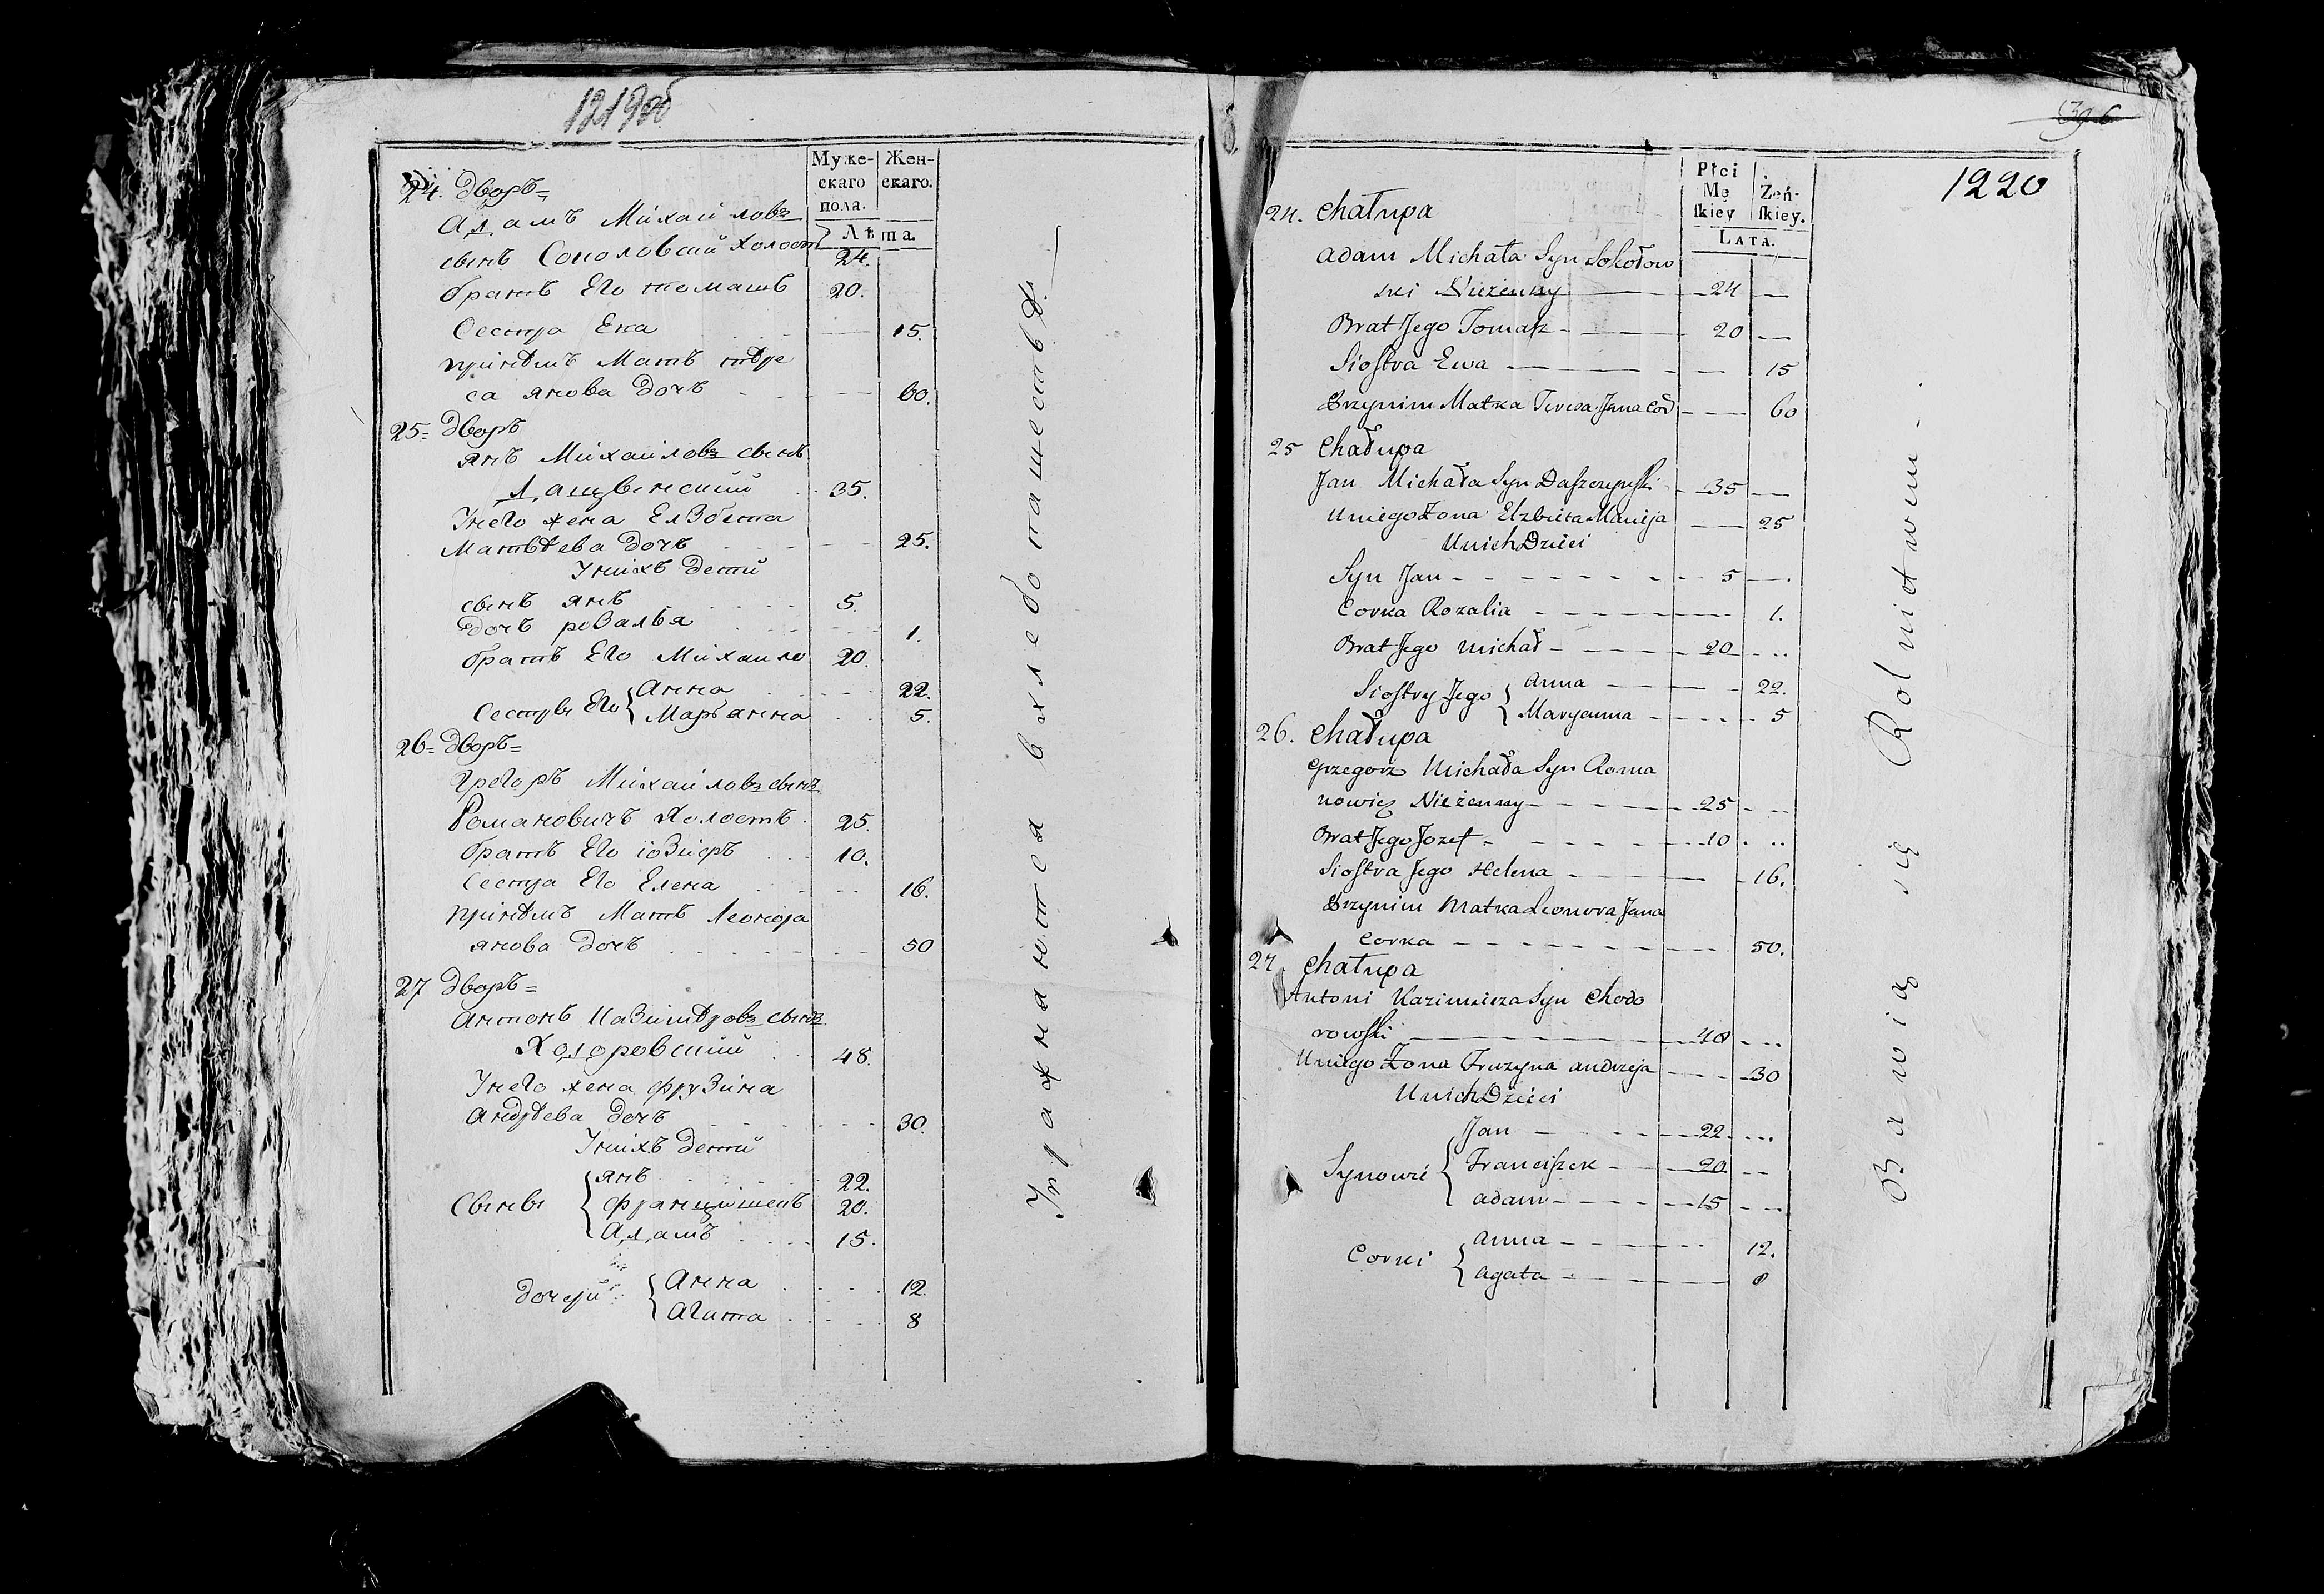 1219 об
Муже-
скаго
пола.
Жен-
скаго.
Лѣта.
24. дворъ=
Адамъ Михайловъ
сынъ Соколовский холост 24.
братъ Его томашъ 20.
Сестра Ева 15.
принѣмъ Мать тере
са янова дочь 60.
25= дворъ
янъ Михайловъ сынъ
Дащынский 35.
Унего жена Елзбета
Матвѣева дочь 25.
Унихъ дети
сынъ янъ 5.
дочь розалья 1.
братъ Его Михаило 20.
Сестры Его { Анна 22.
Марьянна 5.
26= дворъ=
Грегоръ Михайловъ сынъ
Романовичъ холостъ 25.
братъ Его іозифъ 10.
Сестра Его Елена 16.
принѣмъ Мать Леонора
янова дочь 50
27 дворъ=
Антонъ Казимѣровъ сынъ
Ходоровский 48.
Унего жена фрузина
Андрѣева дочь 30.
Унихъ дети
Сыны { янъ 22.
францишекъ 20.
Адамъ 15.
дочери { Анна 12.
Агата 8
Упражняются в хлебопашестве
396
1220
Płci
Mę
ſkiey
Żeń-
ſkiey.
Lata.
24. Chałupa
Adam Michała Syn Sokołow
ski Nieżenny 24
Brat Jego Tomasz 20
Siostra Ewa 15
Przynim Matka Teresa Jana Cor 60
25 Chałupa
Jan Michała Syn Daszczynski 35
Uniego Żona Elzbieta Macieja 25
Unich Dzieci
Syn Jan 5
Corka Rozalia 1.
Brat Jego Michał 20
Siostry Jego { Anna 22.
Maryanna 5
26. Chałupa
Grzegorz Michała Syn Roma
nowicz Nieżenny 25
Brat Jego Jozef 10
Siostra Jego Helena 16.
Przynim Matka Leonora Jana
Corka 50.
27. Chałupa
Antoni Kazimierza Syn Chodo
rowski 48
Uniego Żona Fruzyna Andrzeja 30
Unich Dzieci
Synowie { Jan 22
Franciszek 20
Adam 15
Corki { Anna 12.
Agata 8
Bawią się Rolnictwem